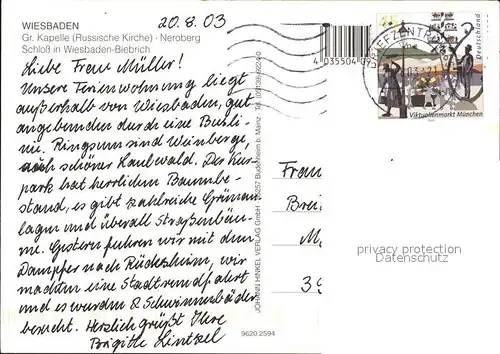 WIESBADEN
Gr. Kapelle (Russische Kirche) · Neroberg
Schloß in Wiesbaden-Biebrich
20.8.03
Liebe Frau Müller!
Unsere Ferienwohnung liegt
außerhalb von Wiesbaden, gut
angebunden durch eine Busli-
nie. Ringsum sind Weinberge,
auch schöner Laubwald. Der Kur-
park hat herrlichen Baumbe-
stand, es gibt zahlreiche Grünan-
lagen und überall Straßenbäu-
me. Gestern fuhren wir mit dem
Dampfer nach Rüdesheim, wir
machten eine Stadtrundfahrt
und es wurden 2 Schwimmbäder
besucht. Herzlich grüßt Ihre
Brigitte
9620 2594
JOHANN HINKEL VERLAG GmbH · 55257 Budenheim b. Mainz · Tel. (06139) 6224-0
4 035504 09
BRIEFZENTRUM
45
Deutschland
Viktualienmarkt München
Frau
Brei
M
39
privacy protection
Datenschutz